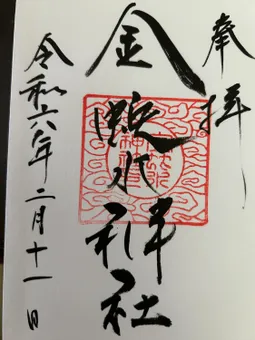 奉拝
金蛇水神社
令和六年二月十一日